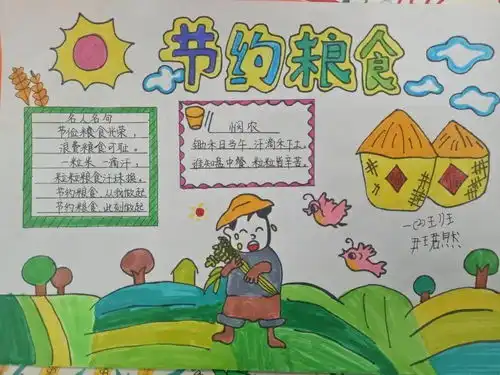 节约粮食
名人名句
节俭粮食光荣，
浪费粮食可耻。
一粒米一滴汗，
粒粒粮食汗珠换。
节约粮食，从我做起
节约粮食，此刻做起
悯农
锄禾日当午，汗滴禾下土。
谁知盘中餐，粒粒皆辛苦。
一(2)班